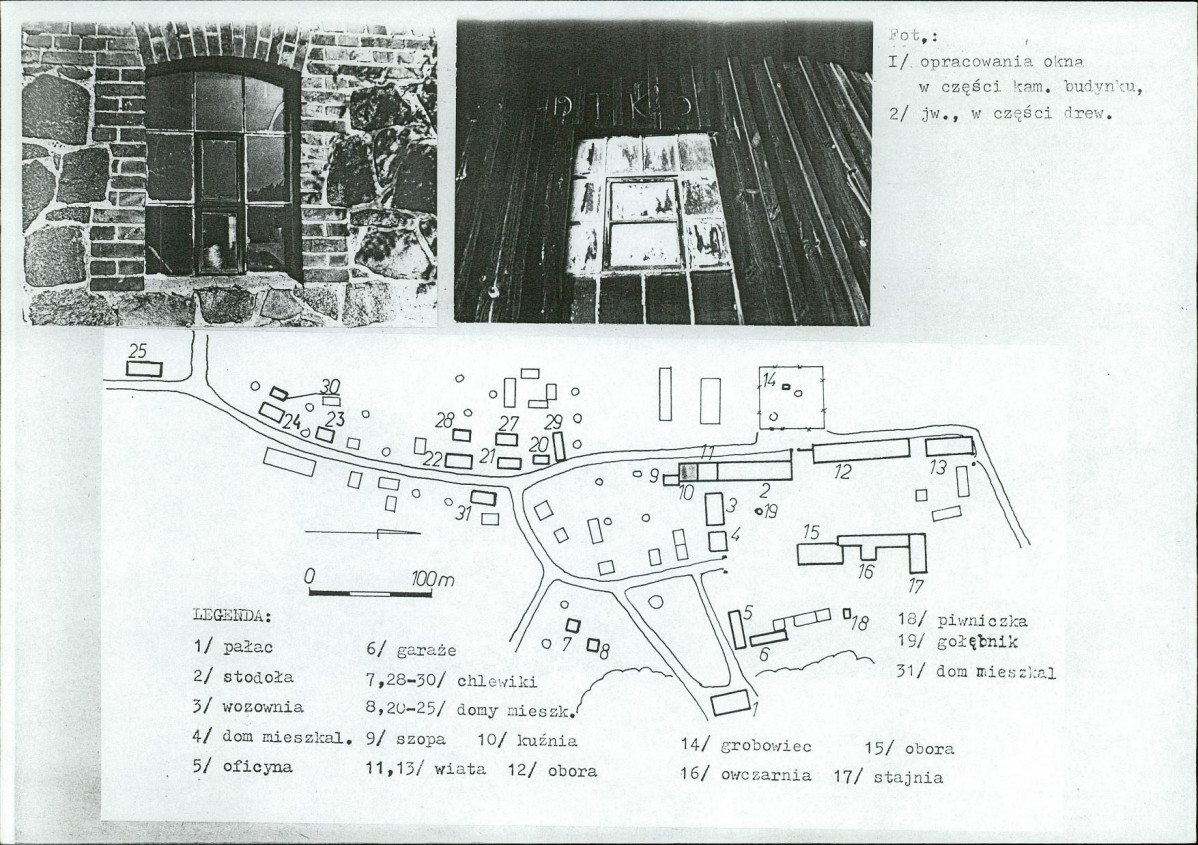 Fot.:
I/ opracowania okna
w części kam. budynku,
2/ jw., w części drew.
25
30
24
23
28
27
29
22
21
20
31
14
11
9
10
2
12
13
3
19
4
15
16
17
0 100m
5
6
18
7
8
1
LEGENDA:
1/ pałac
2/ stodoła
3/ wozownia
4/ dom mieszkal.
5/ oficyna
6/ garaże
7,28-30/ chlewiki
8,20-25/ domy mieszk.
9/ szopa 10/ kuźnia
11,13/ wiata 12/ obora
14/ grobowiec 15/ obora
16/ owczarnia 17/ stajnia
18/ piwniczka
19/ gołębnik
31/ dom mieszkal